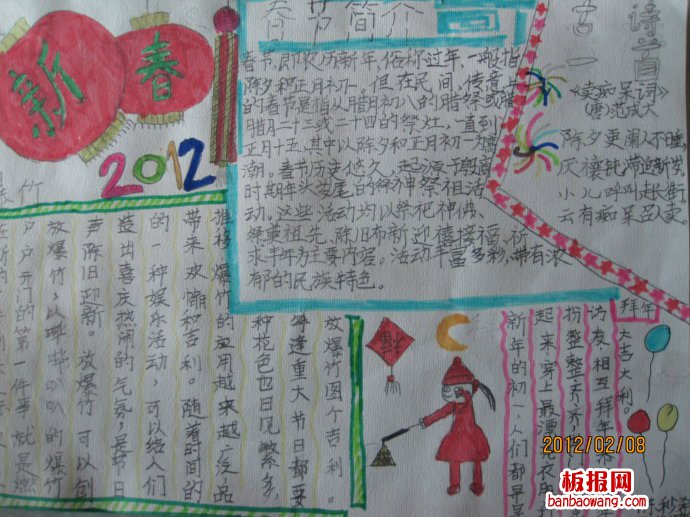 新春
2012
春节简介
春节,即农历新年,俗称过年,一般指
除夕和正月初一。但在民间,传意上
的春节是指从腊月初八的腊祭或腊
腊月二十三或二十四的祭灶,一直到
正月十五,其中以除夕和正月初一为高
潮。春节历史悠久,起源于殷商
时期年头岁尾的祭神祭祖活
动。这些活动均以祭祀神佛、
祭奠祖先、除旧布新、迎禧接福、祈
求丰年为主要内容。活动丰富多彩,带有浓
郁的民族特色。
古诗一首
《卖痴呆词》
(唐)范成大
除夕更阑人不睡,
厌禳钝滞迎新岁。
小儿呼叫走长街,
云有痴呆召人卖。
竹
放爆竹图个吉利
每逢重大节日都要
种花色也日见繁多,
推移,爆竹的应用越来越广,品
带来欢愉和吉利。随着时间的
的一种娱乐活动,可以给人们
造出喜庆热闹的气氛,是节日
声除旧迎新。放爆竹可以创
放爆竹,以哔哔叭叭的爆竹
户户开门的第一件事就是燃
拜年
大吉大利。
访友,相互拜年
扮整整齐齐
起来,穿上最漂
新年的初一,人们都早早
2012/02/08
板报网
banbaowang.com